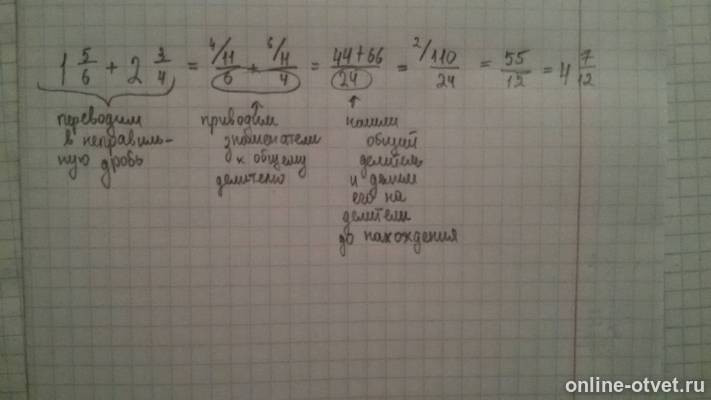 1 5/6 + 2 3/4 = 4/11/6 + 6/11/4 = 44+66/24 = 2/110/24 = 55/12 = 4 7/12
переводим
в неправиль-
ную дробь
приводим
знаменатели
к общему
делителю
нашли
общий
делитель
и делим
его на
делители
до нахождения
online-otvet.ru